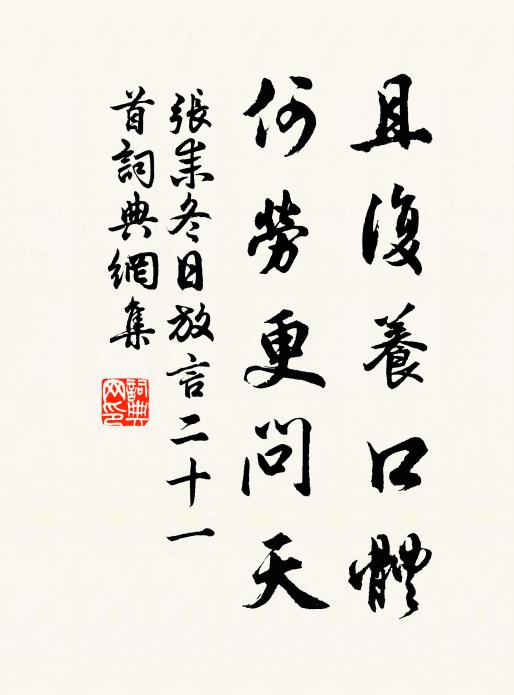 且復養口體
何勞更問天
張耒冬日放言二十一
首詞典網集
詞典网印